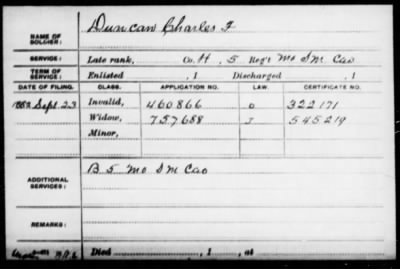 NAME OF SOLDIER: Duncan Charles F
SERVICE: Late rank, Co. H, 5 Reg't Mo S M Cav
TERM OF SERVICE: Enlisted , 1 Discharged , 1
DATE OF FILING. CLASS. APPLICATION NO. LAW. CERTIFICATE NO.
1882 Sept. 23 Invalid, 460866 322171
Widow, 757688 545219
Minor,
ADDITIONAL SERVICES: B 5 Mo S M Cav
REMARKS:
Died , 1 , at